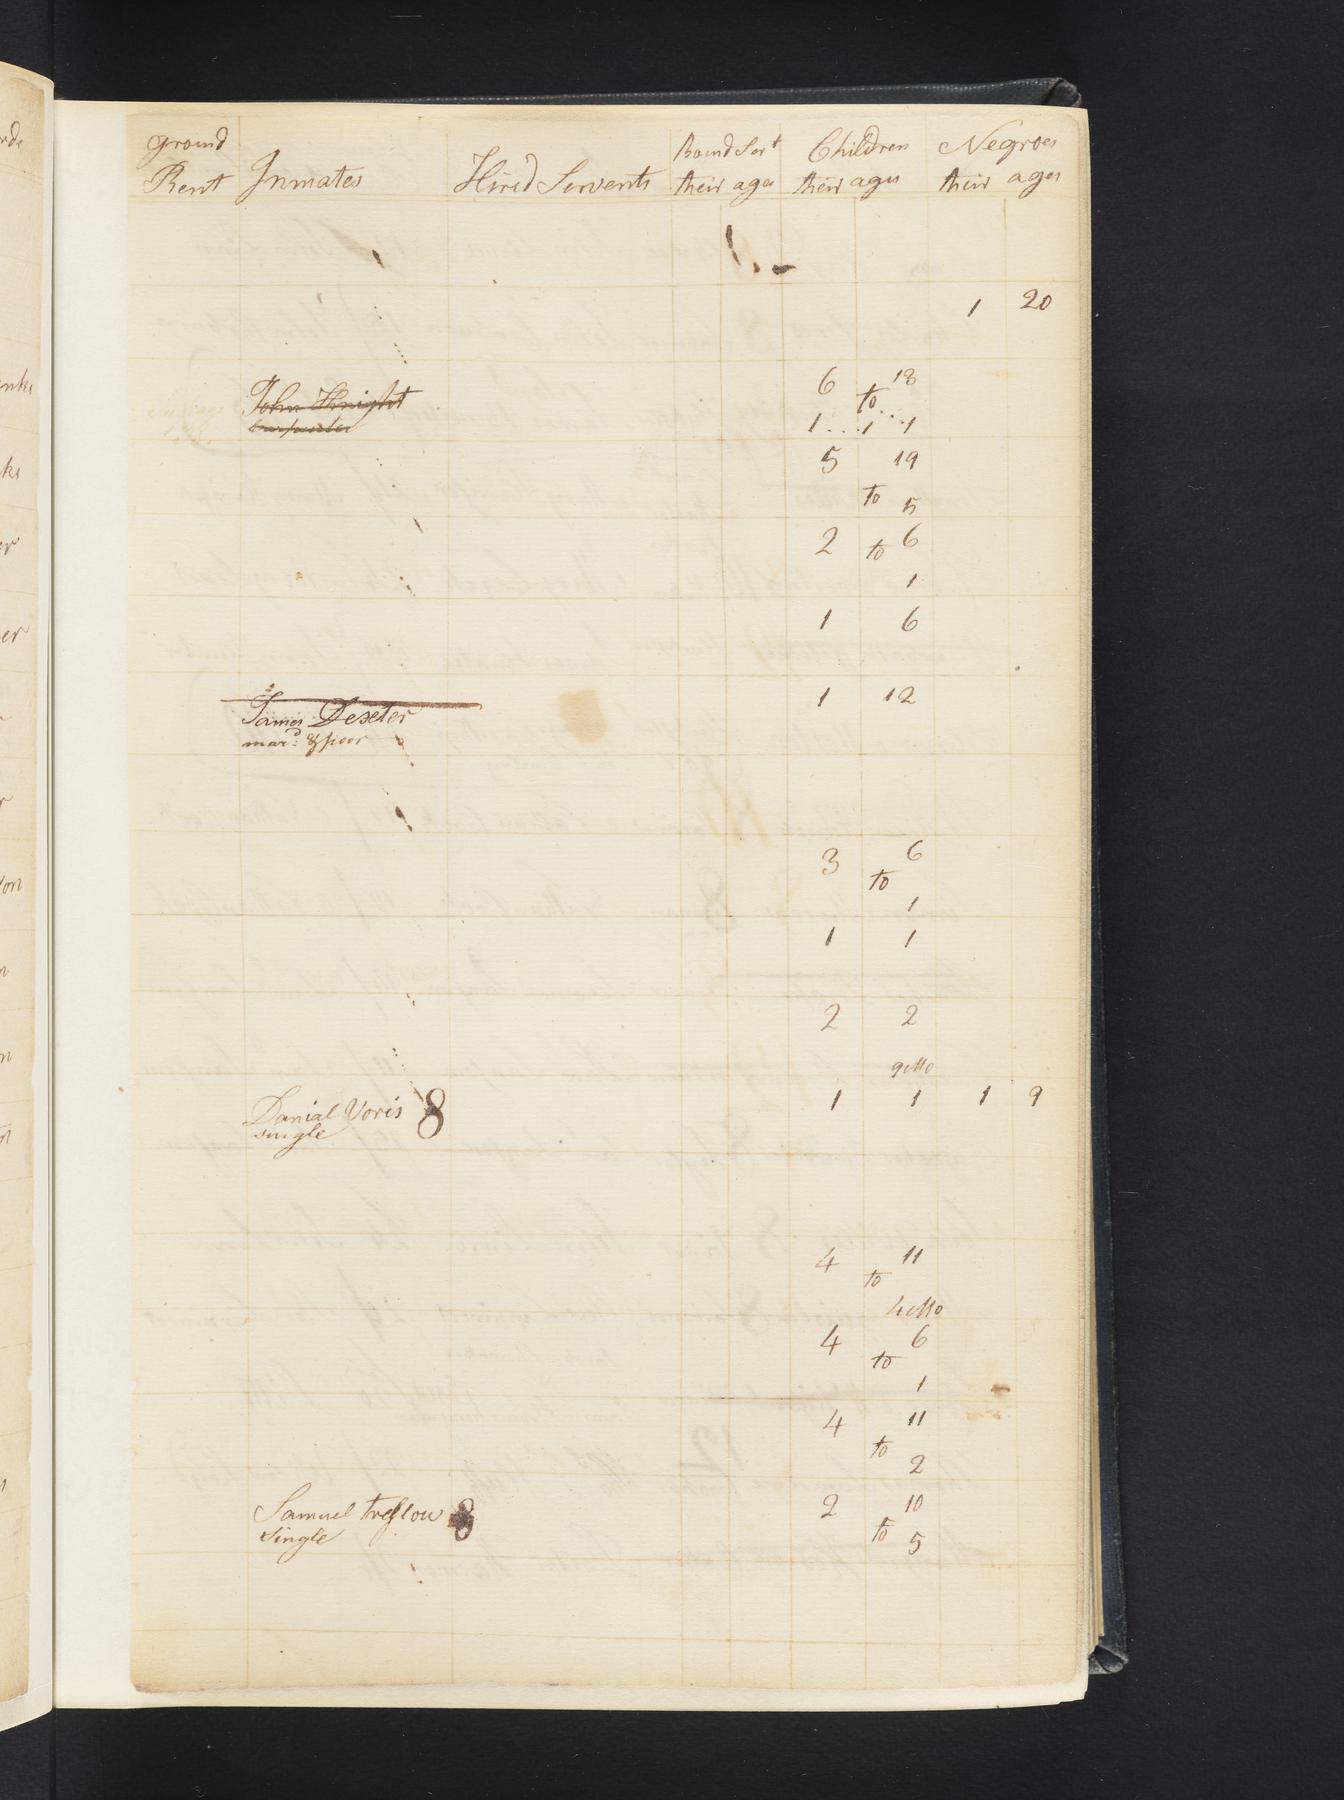 ground Rent
Inmates
Hired Servents
Bound Sert their ages
Children their ages
Negroes their ages
1 20
John Knight
carpenter
6 to 18
1 1 1
5 19
to 5
2 to 6
1
1 6
James Dexter
mard. & poor
1 12
3 6
to
1
1 1
2 2
9 Mo
Danial Voris 8
single
1 1 1 9
4 11
to
4 Mo
4 6
to
1
4 11
to
2
Samuel 8
single
2 10
to
5